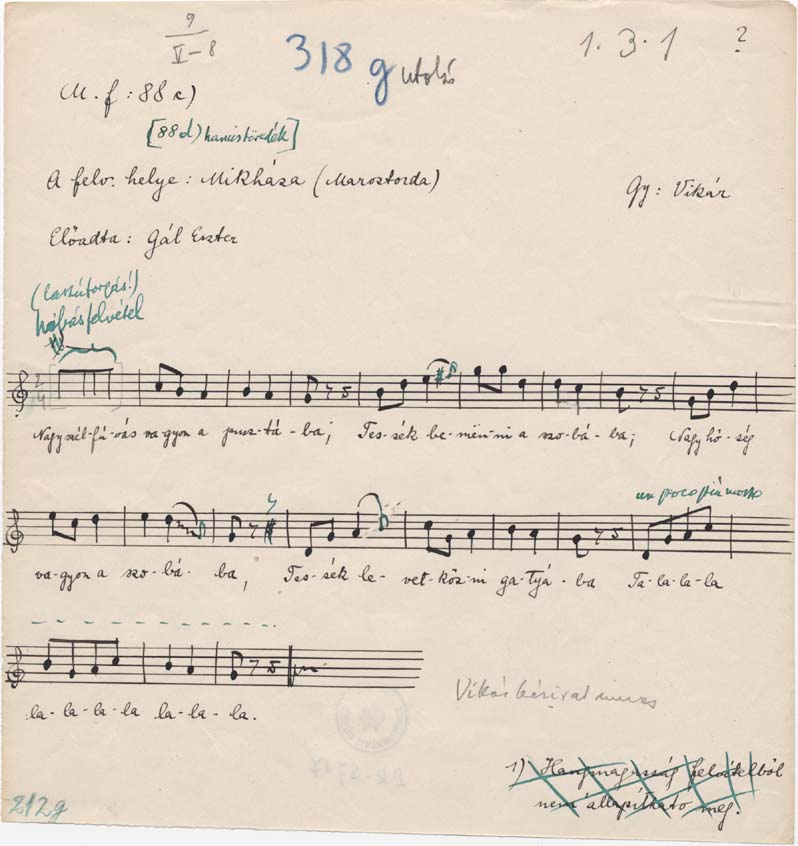 9
V-8
318 g utolsó
1.3.1 ?
M. f : 88 c)
[88d) hamis töredék]
A felv. helye : Mikháza (Marostorda)
Gy : Vikár
Előadta : Gál Eszter
hibás felvétel
2
4
Nagy szél-fú-vás va-gyon a pusz-tá-ba; Tes-sék be-men-ni a szo-bá-ba; Nagy hő-ség
un poco più mosso
va-gyon a szo-bá-ba, Tes-sék le-vet-kőz-ni ga-tyá-ba Ta-la-la-la
la-la-la-la la-la-la.
Vikár kézirat nincs
1) Hangmagasság felvételből
nem állapítható meg.
212g